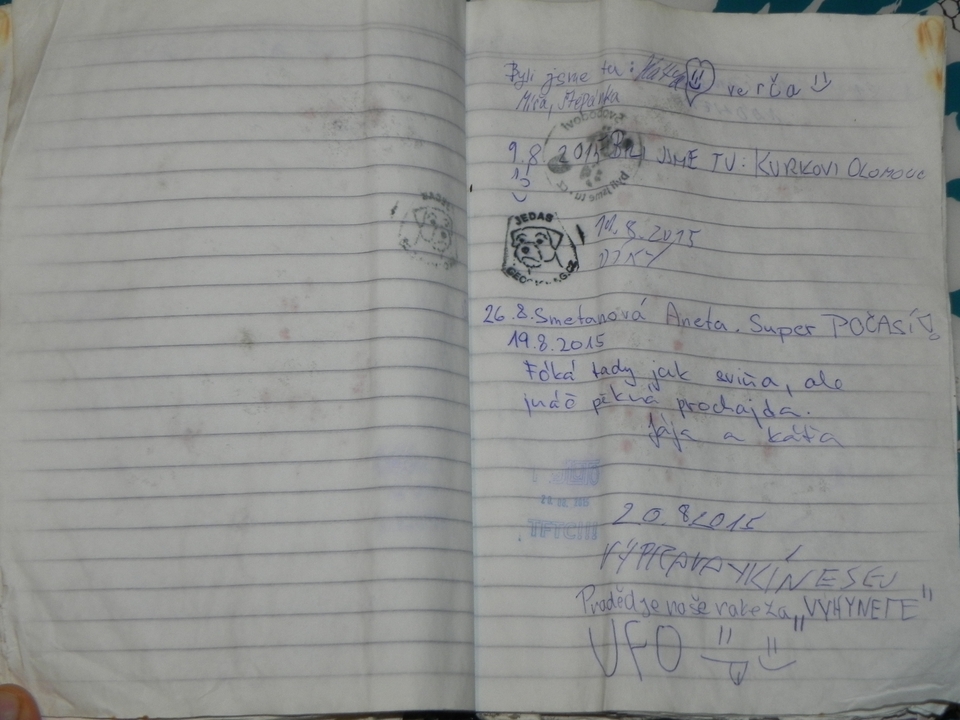 Byli jsme tu: Káťa verča
Míša, Štěpánka
Svobodovi
9.8 2015 BYLI JSME TU: KURKOVI OLOMOUC
15
byli jsme tu
JEDAS
.8.2015
26.8. Smetanová Aneta. Super POČASÍ!
19.8.2015
Fóká tady jak sviňa, ale
jináč pěkná prochajda.
Jája a Káťa
20.8.2015
VÝPRAVA
Praděd je naše raketa „VYHYNETE"
UFO